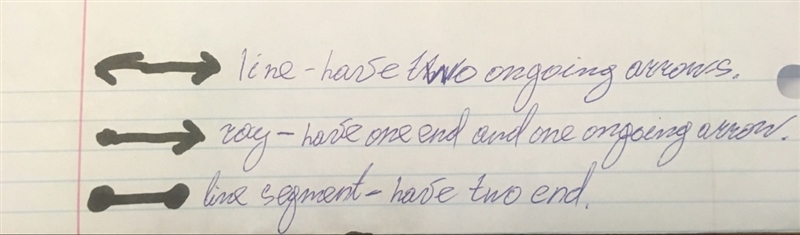 line - have two ongoing arrows.
ray - have one end and one ongoing arrow.
line segment - have two end.